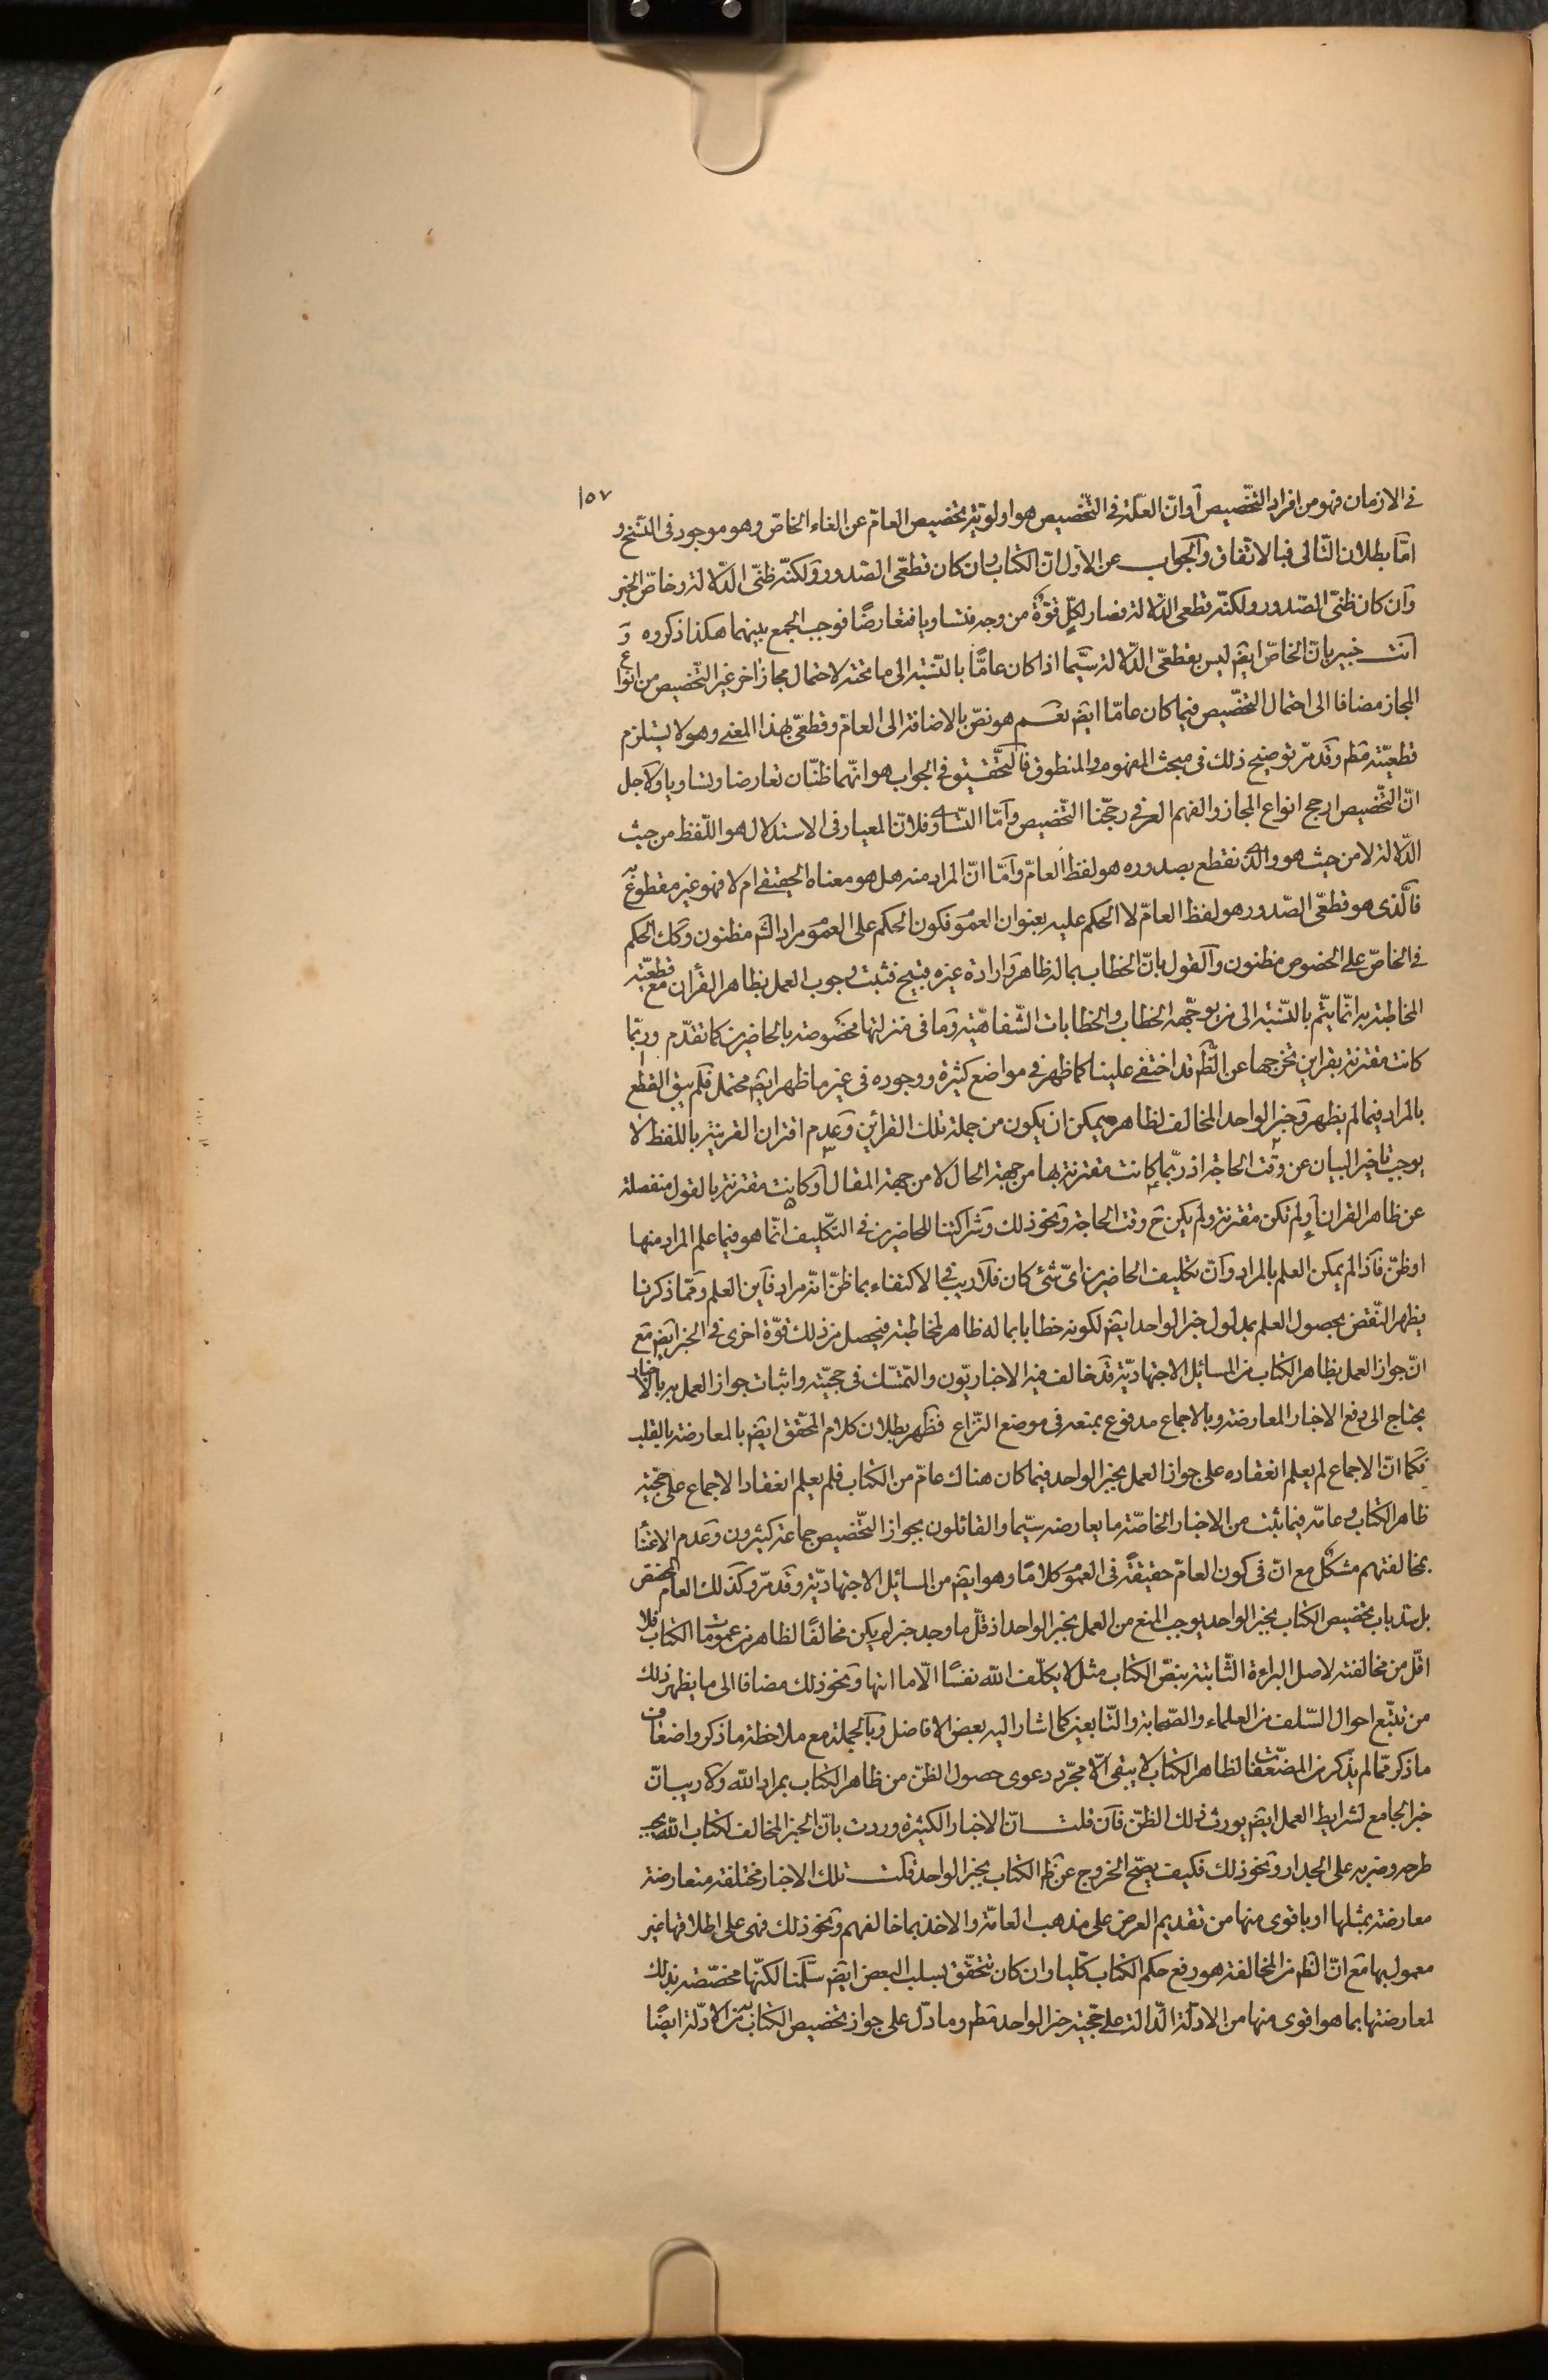 ١٥٧
فى الازمان فهو من افراد التّخصيص آو انّ العلّة فى التّخصيص هو اولويّة تخصيص العامّ عن الغاء الخاصّ وهو موجود فى النّسخ و
امّا بطلان التّالى فبالاتّفاق وآلجواب عن الاوّل انّ الكتاب وان كان قطعىّ الصّدور ولكنّه ظنّى الدّلالة وخاصّ الخبر
وآن كان ظنّى الصّدور ولكنّه قطعى الدّلالة فصار لكلّ قوّة من وجه فتساويا فتعارضًا فوجب الجمع بينهما هكذا ذكروه وَ
انت خبير بانّ الخاصّ ايضَ ليس بقطعىّ الدّلالة سيّما اذا كان عامًّا بالنّسبة الى ما تحته لاحتمال مجاز اخر غير التّخصيص من انواع
المجاز مضافا الى احتمال التّخصيص فيما كان عامّا ايضَ نعم هو نصّ بالاضافة الى العامّ وقطعىّ بهذا المعنى وهو لا يستلزم
قطعيّته مطَ وقَد مرّ توضيح ذلك فى مبحث المفهوم والمنطوق فآلتّحقيق فى الجواب هو انّهما ظنّان تعارضا وتساويا ولاَجل
انّ التّخصيص ارجح انواع المجاز والفهم العرفى رجّحنا التّخصيص وآمّا التّساوى فلانّ المعيار فى الاستدلال هو اللّفظ من حيث
الدّلالة لا من حيث هو والّذى نقطع بصدوره هو لفظ العامّ وآمّا انّ المراد منه هل هو معناه الحقيقى ام لا فهو غير مقطوع به
فآلّذى هو قطعىّ الصّدور هو لفظ العامّ لا الحكم عليه بعنوان العموَ فكون الحكم على العموَ مراد الشَم مظنون وكَك الحكم
فى الخاصّ على الخصوص مظنون وآلقول بانّ الخطاب بما له ظاهر وَارادة غيره قبيح فثبت وجوب العمل بظاهر القرأن مع قطعيّته
المخاطبة به انّما يتمّ بالنّسبة الى من يوجّه الخطاب والخطابات الشّفاهيّة وَما فى منزلتها مخصَوصة بالحاضرين كما تقدّم وربّما
كانت مقترنة بقراين تخرجها عن الظَم قد اختفى علينا كما ظهر فى مواضع كثيرة ووجوده فى غير ما ظهر ايضَ محتمل فلَم يبق القطع
بالمراد فيما لم يظهر وَخبر الواحد المخالف لظاهره يمكن ان يكون من جملة تلك القرائن وَعدم اقتران القرينة باللفظ لا
يوجب تاخير البيان عن وقت الحاجة اذ ربّما كانت مقترنة بها من جهة الحال لا من جهة المقال آو كانت مقترنة بالقول منفصلة
عن ظاهر القران آو لم تكن مقترنة ولم يكن حَ وقت الحاجة وَنحو ذلك وَشراكتنا للحاضرين فى التكليف انّما هو فيما علم المراد منها
او ظنّ فآذا لم يمكن العلم بالمراد وآنّ تكليف الحاضرين اىّ شئ كان فلَا ريب فى الاكتفاء بما ظنّ انّه مراد فآين العلم ومَمّا ذكرنا
يظهر النّقض بحصول العلم بمدلول خبر الواحد ايضَ لكونه خطابا بما له ظاهر لمخاطبه فيحصل من ذلك قوّة اخرى فى الخبر ايضَ مَع
انّ جواز العمل بظاهر الكتاب من المسائل الاجتهاديّة قَد خالف فيه الاخباريّون والتّمسّك فى حجيّته واثبات جواز العمل به بالاخبار
يحتاج الى دفع الاخبار المعارضة وبالاجماع مدفوع بمنعه فى موضع النّزاع فظَهر بطلان كلام المحقّق ايضَ بالمعارضة بالقلب
فكَما انّ الاجماع لم يعلم انعقاده على جواز العمل بخبر الواحد فيما كان هناك عامّ من الكتاب فلم يعلم انعقاد الاجماع على حجّية
ظاهر الكتاب وعامّه فيما ثبت من الاخبار الخاصّة ما يعارضه سيّما والقائلون بجواز التّخصيص جماعة كثيرون وَعدم الاعتناء
بمخالفتهم مشكل مع انّ فى كون العامّ حقيقةً فى العموَ كلامًا وهو ايضَ من المسائل الاجتهاديّة وقَد مرّ وكَذلك العام المخصّص
بل سدّ باب تخصيص الكتاب بخبر الواحد يوجب المنع من العمل بخبر الواحد اذ قلّ ما وجد خبر لم يكن مخالفًا لظاهر من عمومات الكتاب فلا
اقلّ من مخالفته لاصل البراءة الثّابتة بنصّ الكتاب مثل لا يكلّف اللّه نفسًا الّا ما اتيها وَنحو ذلك مضافا الى ما يظهر ذلك
من تتبّع احوال السّلف من العلماء والصّحابة والتّابعين كما اشار اليه بعض الافاضل وبآلجملة مع ملاحظة ما ذكر واضعاف
ما ذكر ممّا لم يذكر من المضعّفات لظاهر الكتاب لا يبقى الّا مجرّد دعوى حصول الظنّ من ظاهر الكتاب بمراد اللّه ولاَ ريب انّ
خبر الجامع لشرايط العمل ايضَ يورث ذلك الظنّ فآن قلت انّ الاخبار الكثيرة وردت بانّ الخبر المخالف لكتاب اللّه يجب
طرحه وضربه على الجدار وَنحو ذلك فكيف يصحّ الخروج عن ظَم الكتاب بخبر الواحد قلَت تلك الاخبار مختلفة متعارضة
معارضة بمثلها او باقوى منها من تقديم العرض على مذهب العامّة والاخذ بما خالفهم وَنحو ذلك فهى على اطلاقها غير
معمول بها مَع انّ الظَم من المخالفة هو رفع حكم الكتاب كليا وان كان تتحقّق بسلب البعض ايضَ سلَّمنا لكنّها مخصّصة بذلك
لمعارضتها بما هو اقوى منها من الادلّة الدّالة على حجّية خبر الواحد مطَم وما دلّ على جواز تخصيص الكتاب به من الادلّة ايضًا